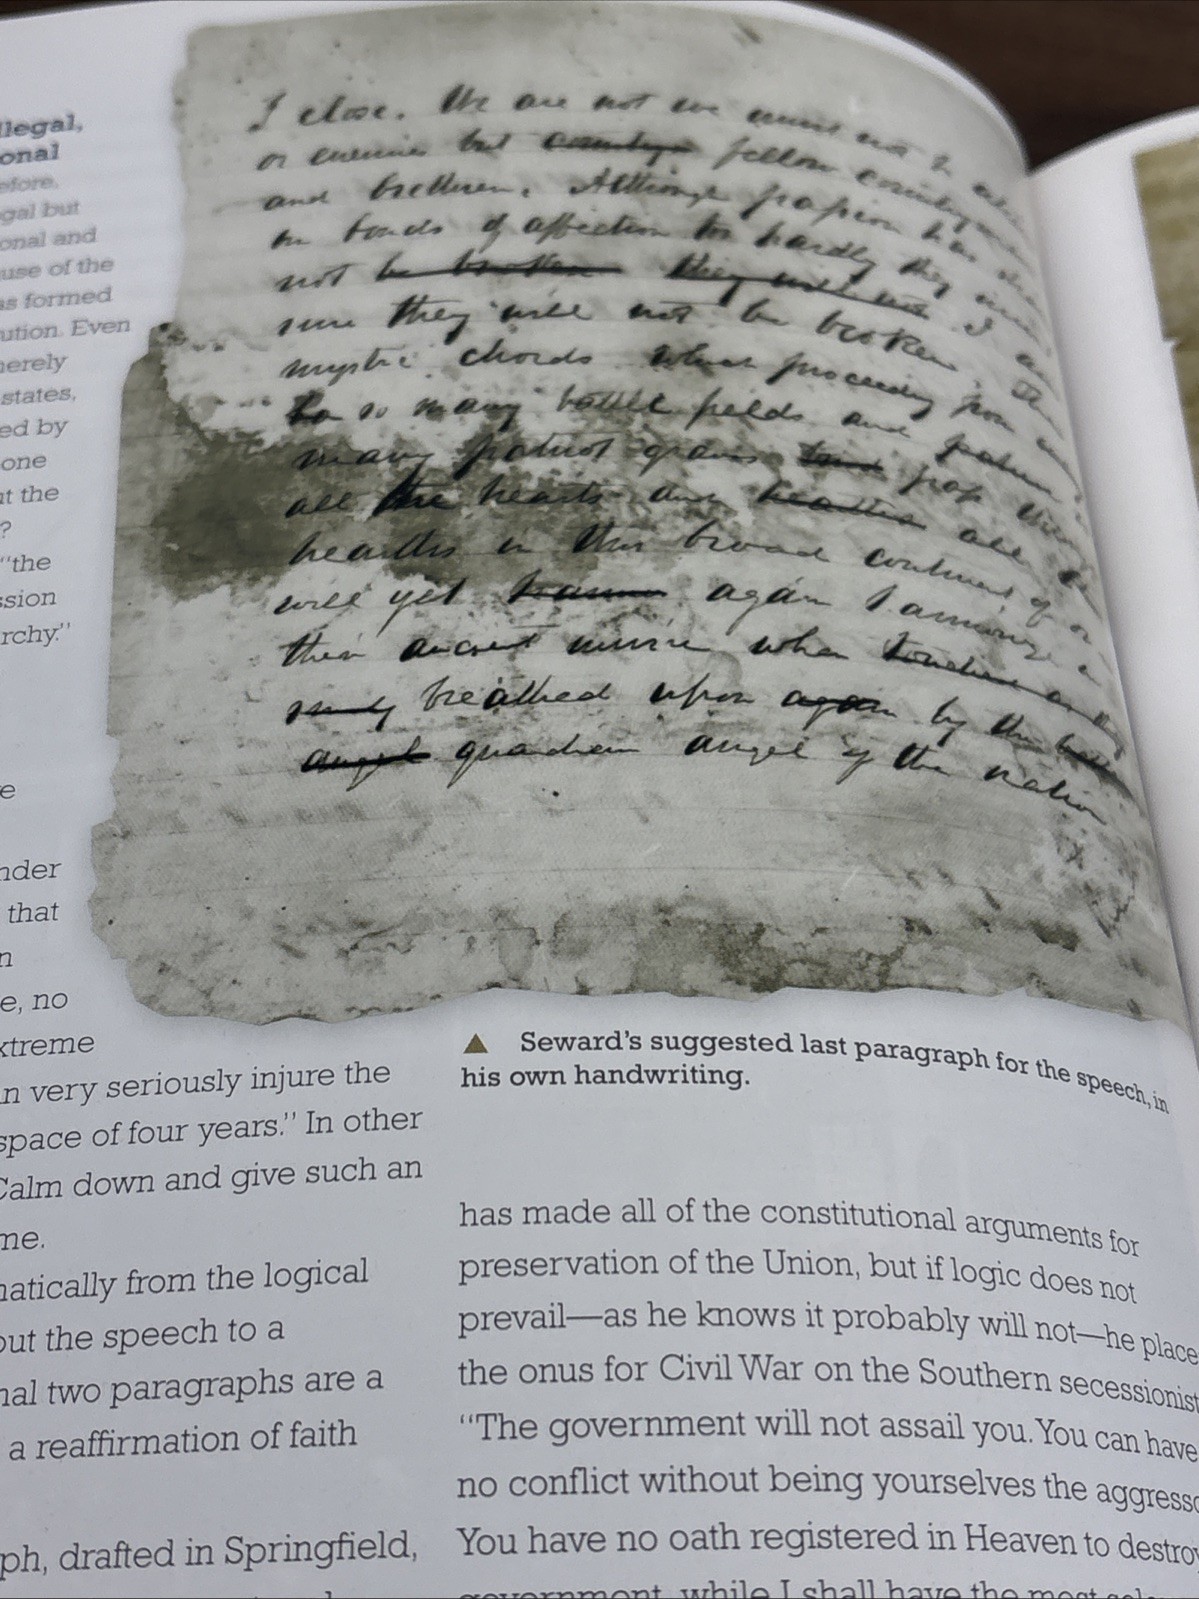 llegal,
onal
efore,
gal but
onal and
use of the
as formed
ution. Even
nerely
states,
ed by
one
t the
?
"the
ssion
rchy."
e
nder
that
n
e, no
xtreme
n very seriously injure the
space of four years." In other
Calm down and give such an
me.
natically from the logical
out the speech to a
nal two paragraphs are a
a reaffirmation of faith
ph, drafted in Springfield,
I close. We are not we must not be
or enemies but countrym fellow countrym
and brethren. Although passion has
our bonds of affection too hardly they
not be broken they will not I am
sure they will not be broken. The
mystic chords which proceeding from
so many battle fields and patriot
many patriot graves pass through
all the hearts and hearths all the
hearths in this broad continent of
will yet harmo again harmonize
their ancient music when touched
breathed upon again by the better
angel guardian angel of the nation
▲ Seward's suggested last paragraph for the speech, in
his own handwriting.
has made all of the constitutional arguments for
preservation of the Union, but if logic does not
prevail—as he knows it probably will not—he place
the onus for Civil War on the Southern secessionist
"The government will not assail you. You can have
no conflict without being yourselves the aggresso
You have no oath registered in Heaven to destroy
government, while I shall have the most